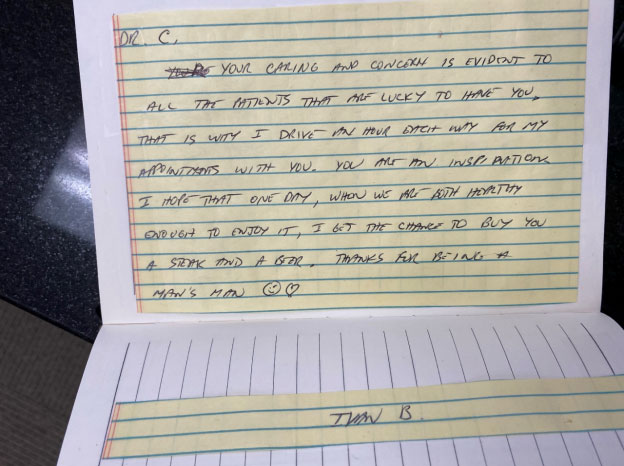 DR. C,
YOUR CARING AND CONCERN IS EVIDENT TO
ALL THE PATIENTS THAT ARE LUCKY TO HAVE YOU.
THAT IS WHY I DRIVE AN HOUR EACH WAY FOR MY
APPOINTMENTS WITH YOU. YOU ARE AN INSPIRATION.
I HOPE THAT ONE DAY, WHEN WE ARE BOTH HEALTHY
ENOUGH TO ENJOY IT, I GET THE CHANCE TO BUY YOU
A STEAK AND A BEER. THANKS FOR BEING A
MAN'S MAN ☺♡
B.